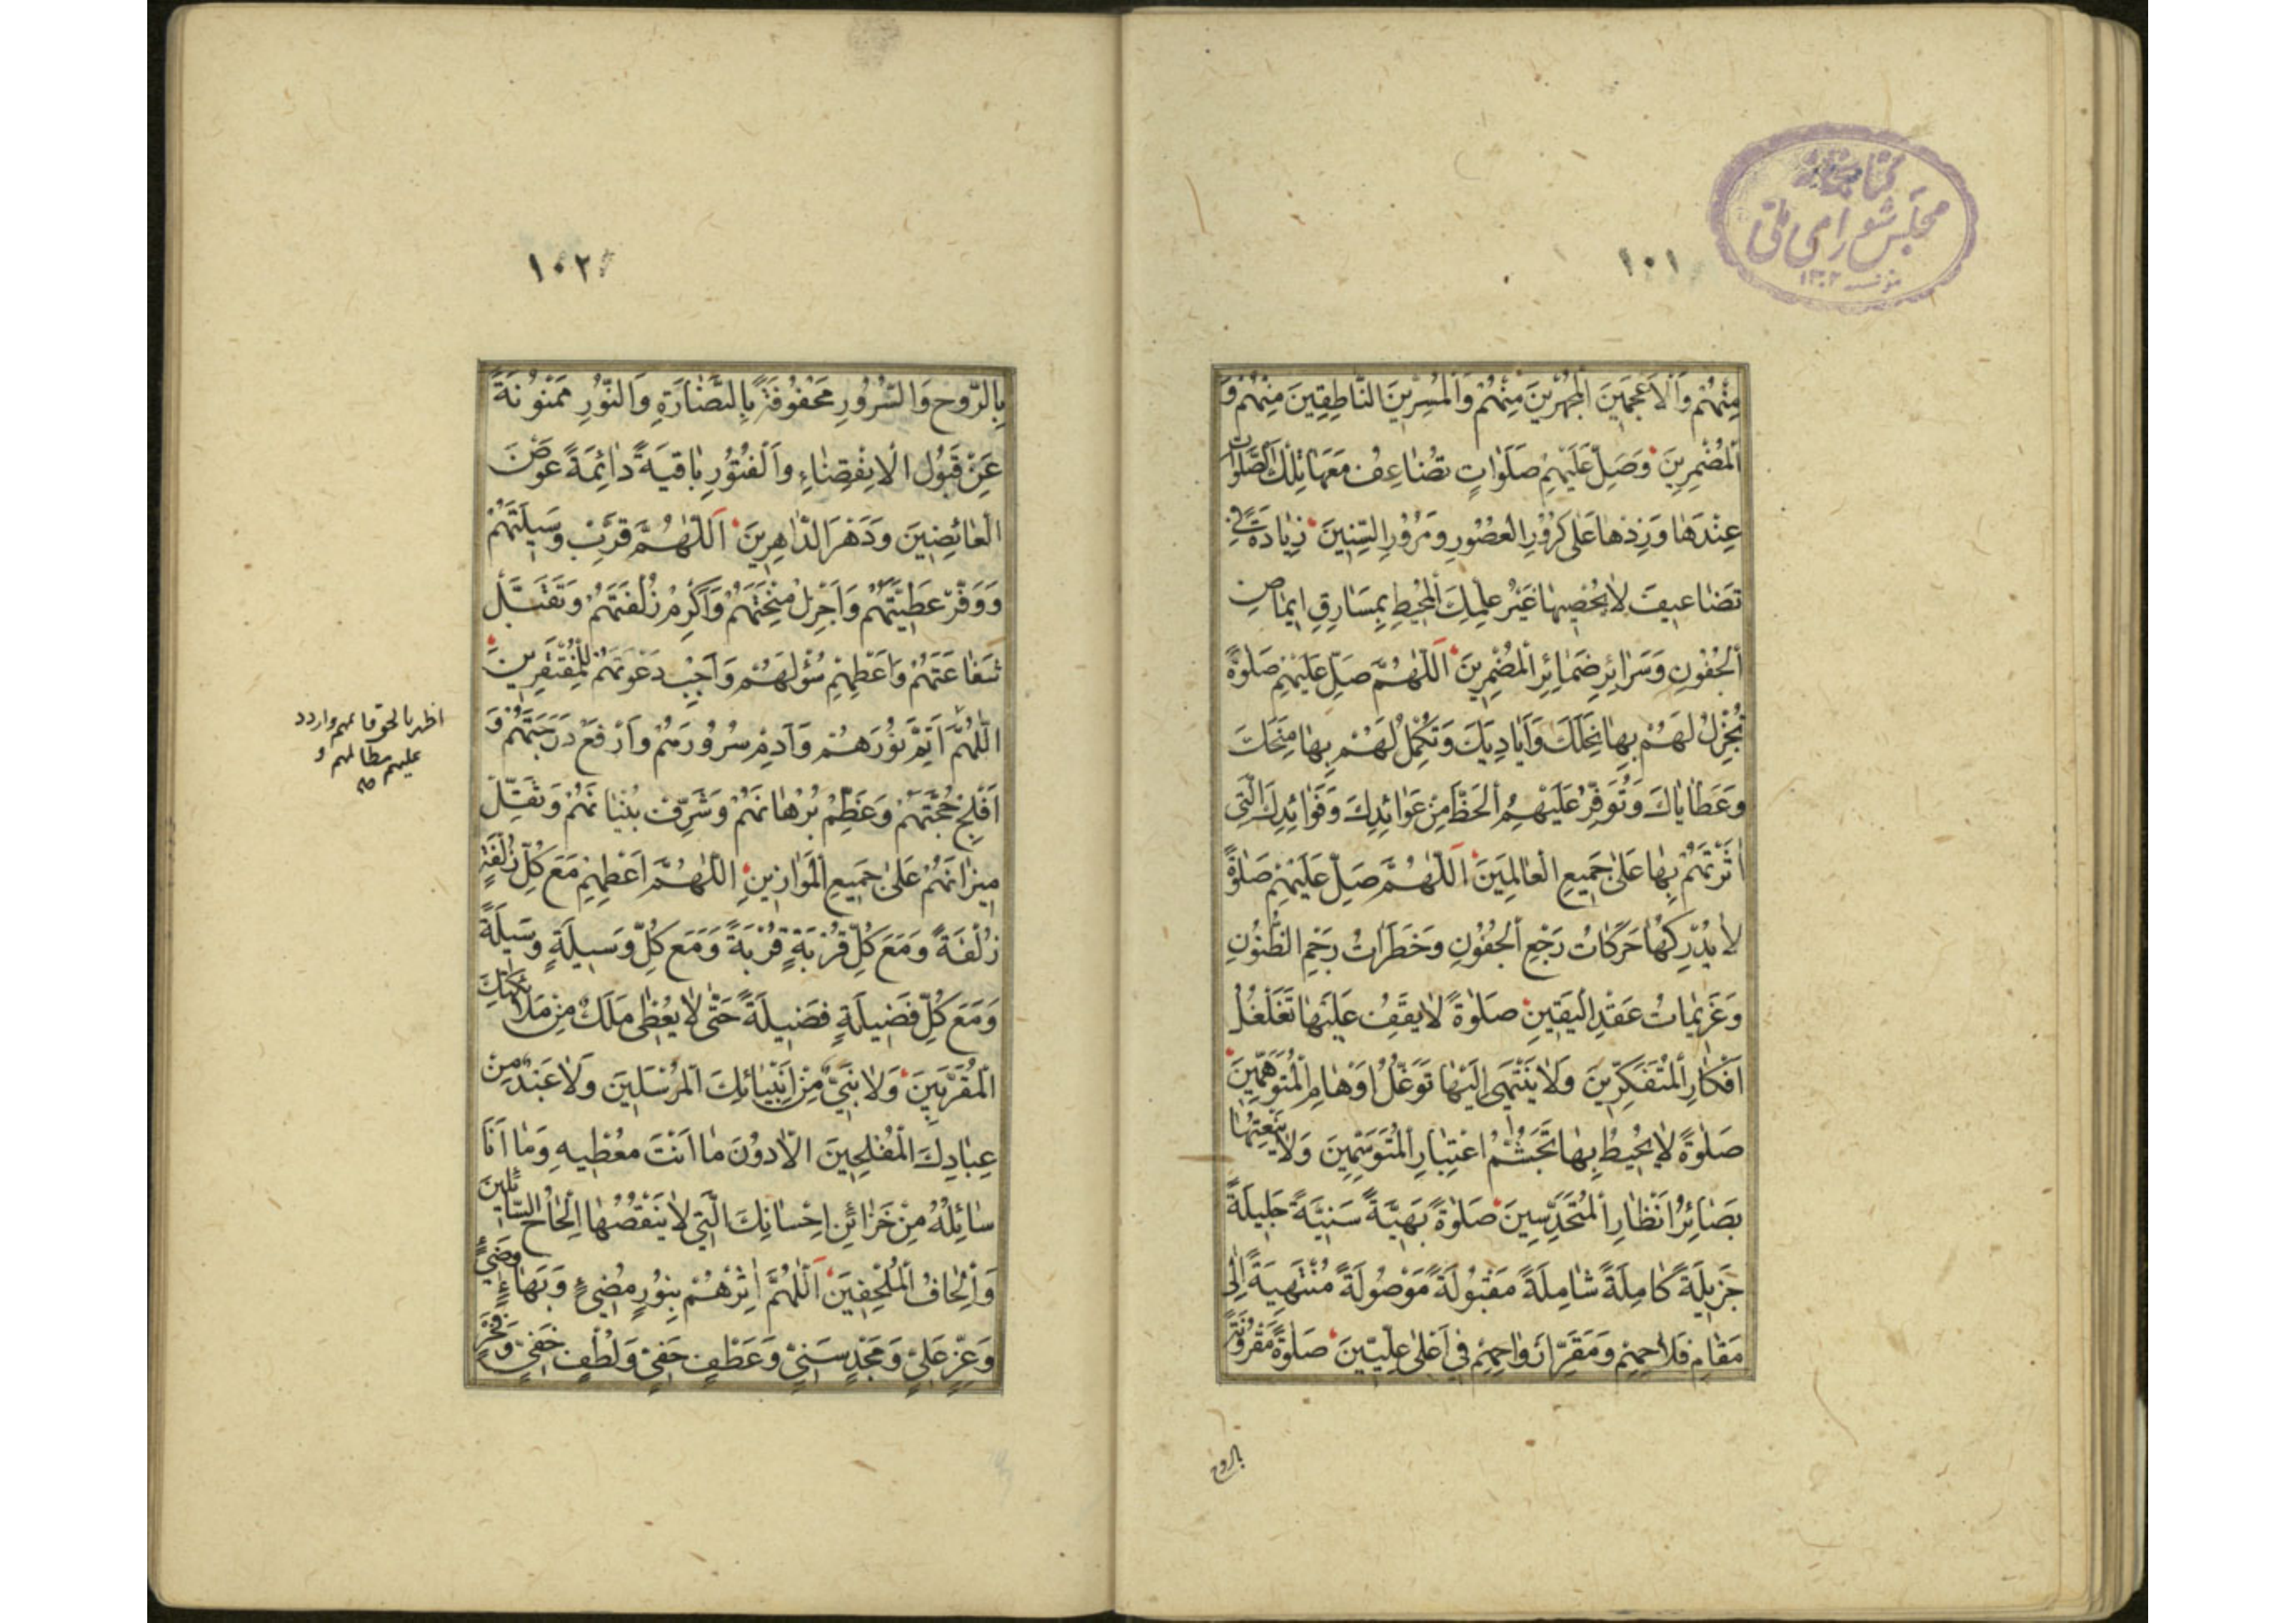 كتابخانه
مجلس شورای ملی
١٣٠٢
١٠١
مِنْهُمْ وَالْاَعْجَمِينَ الْمُجْهِرِينَ مِنْهُمْ وَالْمُسِرِّينَ النَّاطِقِينَ مِنْهُمْ وَ
الْمُضْمِرِينَ وَصَلِّ عَلَيْهِمْ صَلَوَاتٍ تُضَاعِفُ مَعَهَا تِلْكَ الصَّلَوَاتِ
عِنْدَهَا وَزِدْهَا عَلَى كُرُورِ الْعُصُورِ وَمُرُورِ السِّنِينَ زِيَادَةً فِي
تَضَاعِيفَ لَا يُحْصِيهَا غَيْرُ عِلْمِكَ الْمُحِيطِ بِمَسَارِقِ اِيمَاضِ
الْجُفُونِ وَسَرَائِرِ ضَمَائِرِ الْمُضْمِرِينَ اَللّٰهُمَّ صَلِّ عَلَيْهِمْ صَلٰوةً
تُجْزِلُ لَهُمْ بِهَا نِحَلَكَ وَاَيَادِيَكَ وَتُكْمِلُ لَهُمْ بِهَا مِنَحَكَ
وَعَطَايَاكَ وَتُوَفِّرُ عَلَيْهِمُ الْحَظَّ مِنْ عَوَائِدِكَ وَفَوَائِدِكَ الَّتِي
اٰثَرْتَهُمْ بِهَا عَلَى جَمِيعِ الْعَالَمِينَ اَللّٰهُمَّ صَلِّ عَلَيْهِمْ صَلٰوةً
لَا يُدْرِكُهَا حَرَكَاتُ رَجْعِ الْجُفُونِ وَخَطَرَاتُ رَجْمِ الظُّنُونِ
وَعَزِيمَاتُ عَقْدِ الْيَقِينِ صَلٰوةً لَا يَقِفُ عَلَيْهَا تَغَلْغُلُ
اَفْكَارِ الْمُتَفَكِّرِينَ وَلَا يَنْتَهِي اِلَيْهَا تَوَغُّلُ اَوْهَامِ الْمُتَوَهِّمِينَ
صَلٰوةً لَا يُحِيطُ بِهَا تَجَشُّمُ اعْتِبَارِ الْمُتَوَسِّمِينَ وَلَا
بَصَائِرُ اَنْظَارِ الْمُتَحَدِّسِينَ صَلٰوةً بَهِيَّةً سَنِيَّةً جَلِيلَةً
جَزِيلَةً كَامِلَةً شَامِلَةً مَقْبُولَةً مَوْصُولَةً مُنْتَهِيَةً اِلَى
مَقَامِ فَلَاحِهِمْ وَمَقَرِّ اَرْوَاحِهِمْ فِي اَعْلَى عِلِّيِّينَ صَلٰوةً مَقْرُونَةً
بالروح
١٠٢
بِالرَّوْحِ وَالسُّرُورِ مَحْفُوفَةً بِالنَّضَارَةِ وَالنُّورِ مَمْنُونَةً
عَنْ قَبُولِ الْاِنْقِضَاءِ وَالْفُتُورِ بَاقِيَةً دَائِمَةً عَوْضَ
الْعَائِضِينَ وَدَهْرَ الدَّاهِرِينَ اَللّٰهُمَّ قَرِّبْ وَسِيلَتَهُمْ
وَوَفِّرْ عَطِيَّتَهُمْ وَاَجْزِلْ مِنْحَتَهُمْ وَاَكْرِمْ زُلْفَتَهُمْ وَتَقَبَّلْ
شَفَاعَتَهُمْ وَاَعْطِهِمْ سُؤْلَهُمْ وَاَجِبْ دَعْوَتَهُمْ لِلْمُفْتَقِرِينَ
اَللّٰهُمَّ اَتِمَّ نُورَهُمْ وَاَدِمْ سُرُورَهُمْ وَارْفَعْ دَرَجَتَهُمْ وَ
اَفْلِجْ حُجَّتَهُمْ وَعَظِّمْ بُرْهَانَهُمْ وَشَرِّفْ بُنْيَانَهُمْ وَثَقِّلْ
مِيزَانَهُمْ عَلَى جَمِيعِ الْمَوَازِينِ اَللّٰهُمَّ اَعْطِهِمْ مَعَ كُلِّ زُلْفَةٍ
زُلْفَةً وَمَعَ كُلِّ قُرْبَةٍ قُرْبَةً وَمَعَ كُلِّ وَسِيلَةٍ وَسِيلَةً
وَمَعَ كُلِّ فَضِيلَةٍ فَضِيلَةً حَتَّى لَا يُعْطَى مَلَكٌ مِنْ مَلَائِكَتِكَ
الْمُقَرَّبِينَ وَلَا نَبِيٌّ مِنْ اَنْبِيَائِكَ الْمُرْسَلِينَ وَلَا عَبْدٌ مِنْ
عِبَادِكَ الْمُفْلِحِينَ اِلَّا دُونَ مَا اَنْتَ مُعْطِيهِ وَمَا اَنَا
سَائِلُهُ مِنْ خَزَائِنِ اِحْسَانِكَ الَّتِي لَا يَنْقُصُهَا اِلْحَاحُ السَّائِلِينَ
وَاِلْحَافُ الْمُلْحِفِينَ اَللّٰهُمَّ اٰثِرْهُمْ بِنُورٍ مُضِيءٍ وَبَهَاءٍ وَضِيءٍ
وَعِزٍّ عَلِيٍّ وَمَجْدٍ سَنِيٍّ وَعَطْفٍ حَفِيٍّ وَلُطْفٍ خَفِيٍّ وَفَخْرٍ
اظهر بالحق قائمهم واردد
عليهم مظالمهم و